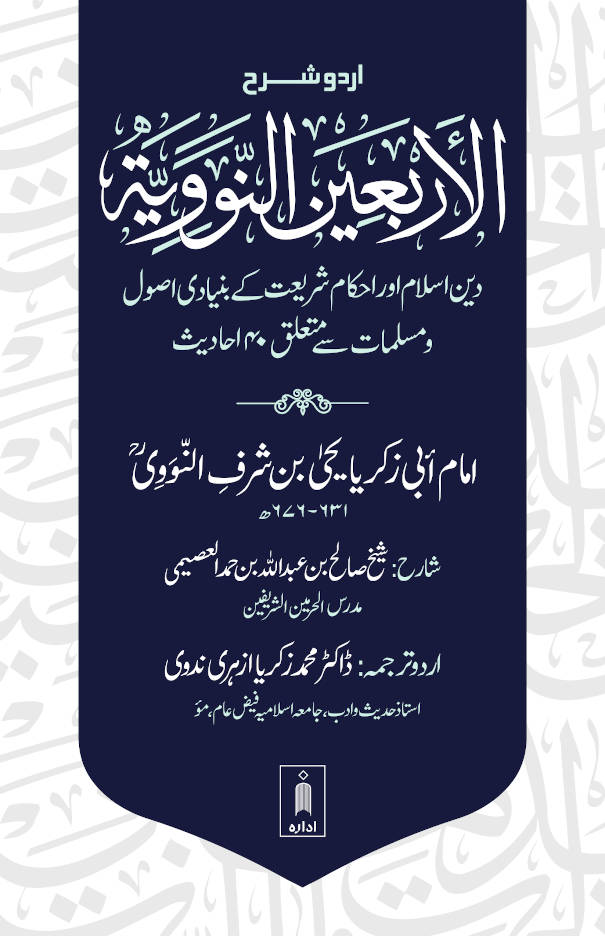 اردو شرح
الأربعين النَّوَوِيَّة
دین اسلام اور احکام شریعت کے بنیادی اصول
و مسلمات سے متعلق ۴۰ احادیث
امام أبی زکریا یحیٰ بن شرفِ النَّوَوِی رح
۶۳۱-۶۷۶ھ
شارح: شیخ صالح بن عبداللہ بن حمد العصیمی
مدرس الحرمین الشریفین
اردو ترجمہ: ڈاکٹر محمد زکریا ازہری ندوی
استاذ حدیث و ادب، جامعہ اسلامیہ فیض عام، مؤ
ادارہ